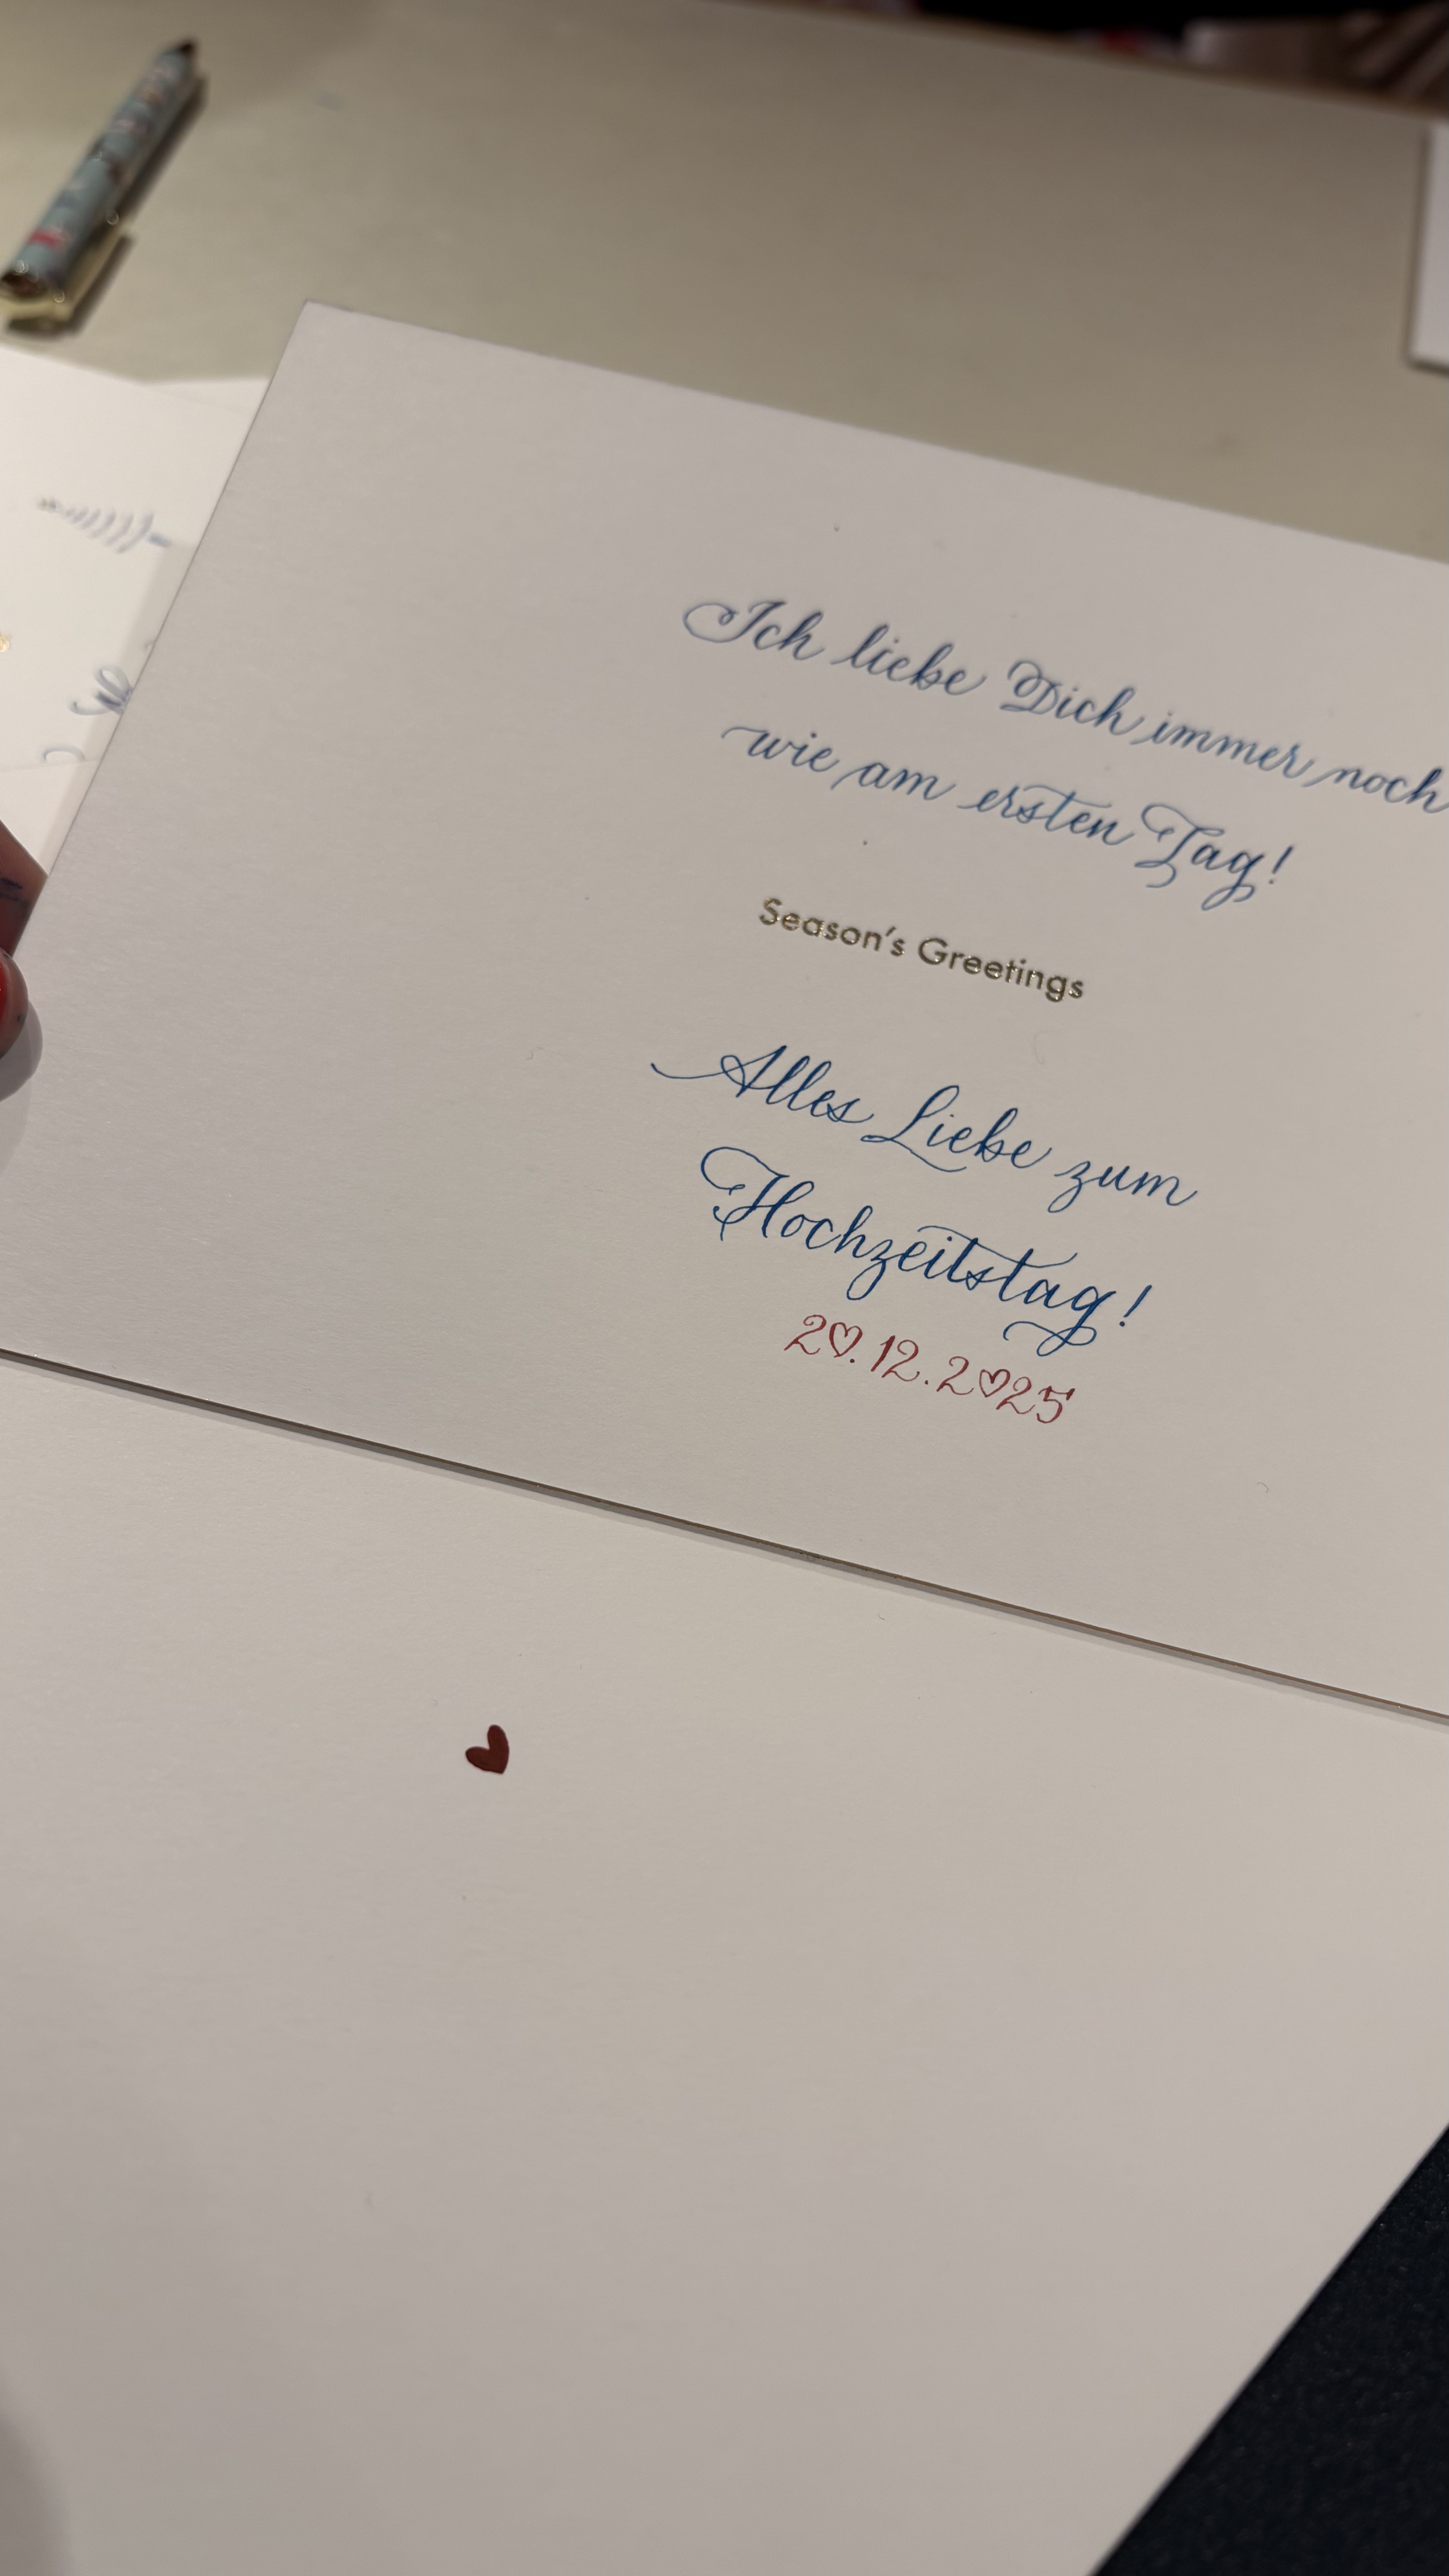 Ich liebe Dich immer noch
wie am ersten Tag!
Season's Greetings
Alles Liebe zum
Hochzeitstag!
20.12.2025